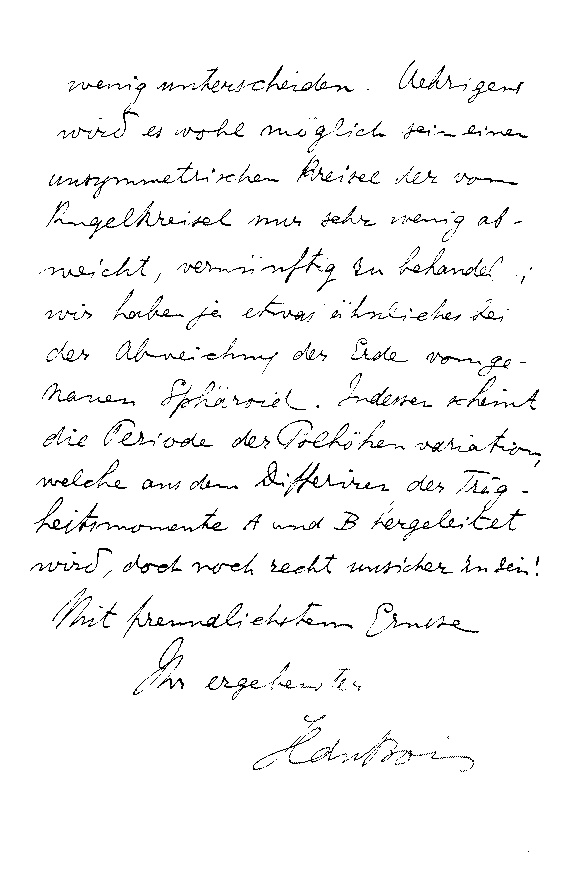 wenig unterscheiden. Uebrigens
wird es wohl möglich sein einen
unsymmetrischen Kreisel der vom
Kugelkreisel nur sehr wenig ab-
weicht, vernünftig zu behandel ;
wir haben ja etwas ähnliches bei
der Abweichung der Erde vom ge-
nauen Sphäroid. Indessen scheint
die Periode der Polhöhenvariation,
welche aus dem Differiren der Träg-
heitsmomente A und B hergeleitet
wird, doch noch recht unsicher zu sein!
Mit freundlichstem Grusse
Ihr ergebenster
H du Bois